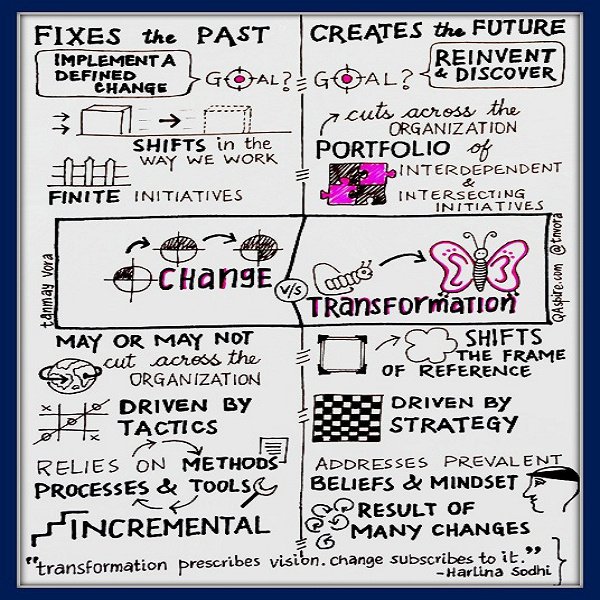 FIXES the PAST
IMPLEMENT A
DEFINED
CHANGE
GOAL?
SHIFTS in the
WAY WE WORK
FINITE INITIATIVES
CREATES the FUTURE
GOAL?
REINVENT
& DISCOVER
cuts across the
ORGANIZATION
PORTFOLIO of
INTERDEPENDENT
&
INTERSECTING
INITIATIVES
tanmay vora
CHANGE
V/S
TRANSFORMATION
QAspire.com @tnvora
MAY OR MAY NOT
cut across the
ORGANIZATION
DRIVEN BY
TACTICS
RELIES ON METHODS
PROCESSES & TOOLS
INCREMENTAL
SHIFTS
THE FRAME
OF REFERENCE
DRIVEN BY
STRATEGY
ADDRESSES PREVALENT
BELIEFS & MINDSET
RESULT OF
MANY CHANGES
"transformation prescribes vision. change subscribes to it."
-Harlina Sodhi